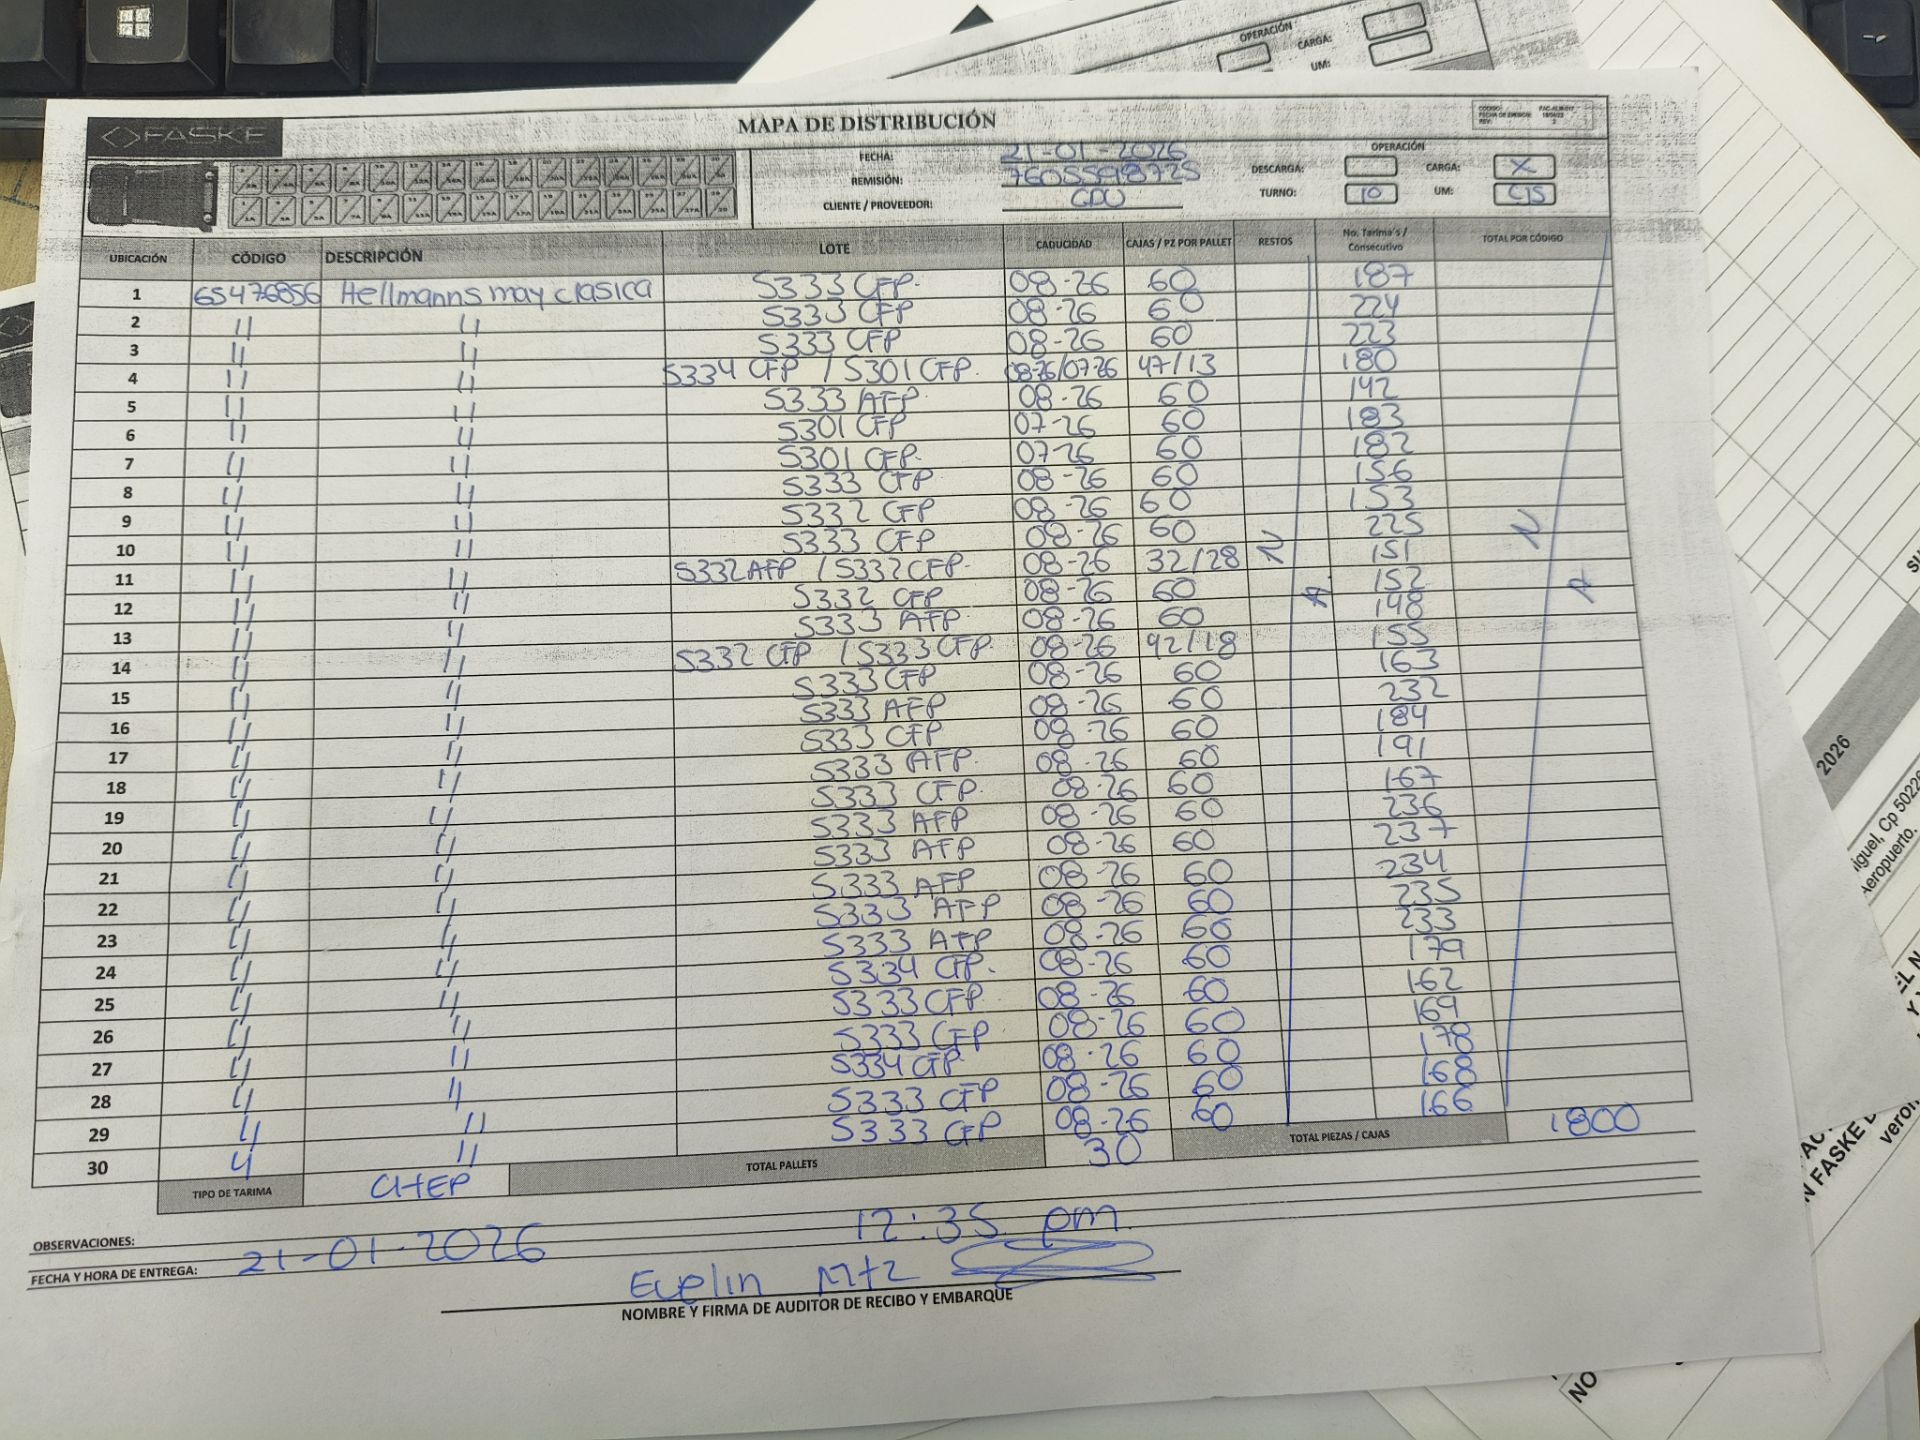 OPERACIÓN
CARGA:
UM:
FASKE
MAPA DE DISTRIBUCIÓN
FECHA: 21-01-2026
REMISIÓN: 7605598725
CLIENTE / PROVEEDOR: CDU
OPERACIÓN
DESCARGA: CARGA: X
TURNO: 10 UM: CJS
UBICACIÓN CÓDIGO DESCRIPCIÓN LOTE CADUCIDAD CAJAS / PZ POR PALLET RESTOS No. Tarima's / Consecutivo TOTAL POR CÓDIGO
1 65476856 Hellmanns may clasica S333 CFP. 08-26 60 187
2 " " S333 CFP 08-26 60 224
3 " " S333 CFP 08-26 60 223
4 " " S334 CFP / S301 CFP. 08-26/07-26 47/13 180
5 " " S333 AFP. 08-26 60 142
6 " " S301 CFP 07-26 60 183
7 " " S301 CFP. 07-26 60 182
8 " " S333 CFP 08-26 60 156
9 " " S332 CFP 08-26 60 153
10 " " S333 CFP 08-26 60 225
11 " " S332AFP / S332CFP. 08-26 32/28 151
12 " " S332 CFP 08-26 60 152
13 " " S333 AFP. 08-26 60 148
14 " " S332 CFP / S333 CFP. 08-26 42/18 155
15 " " S333 CFP 08-26 60 163
16 " " S333 AFP 08-26 60 232
17 " " S333 CFP 08-26 60 184
18 " " S333 AFP. 08-26 60 191
19 " " S333 CFP. 08-26 60 167
20 " " S333 AFP 08-26 60 236
21 " " S333 AFP 08-26 60 237
22 " " S333 AFP 08-26 60 234
23 " " S333 AFP 08-26 60 235
24 " " S333 AFP 08-26 60 233
25 " " S334 CFP. 08-26 60 179
26 " " S333 CFP 08-26 60 162
27 " " S333 CFP 08-26 60 169
28 " " S334 CFP 08-26 60 178
29 " " S333 CFP 08-26 60 168
30 " " S333 CFP 08-26 60 166
N A N A
TIPO DE TARIMA CHEP TOTAL PALLETS 30 TOTAL PIEZAS / CAJAS 1800
OBSERVACIONES:
FECHA Y HORA DE ENTREGA: 21-01-2026 12:35 pm.
Evelin Mtz
NOMBRE Y FIRMA DE AUDITOR DE RECIBO Y EMBARQUE
2026
iguel, Cp 5022
Aeropuerto.
N FASKE
veron
NO